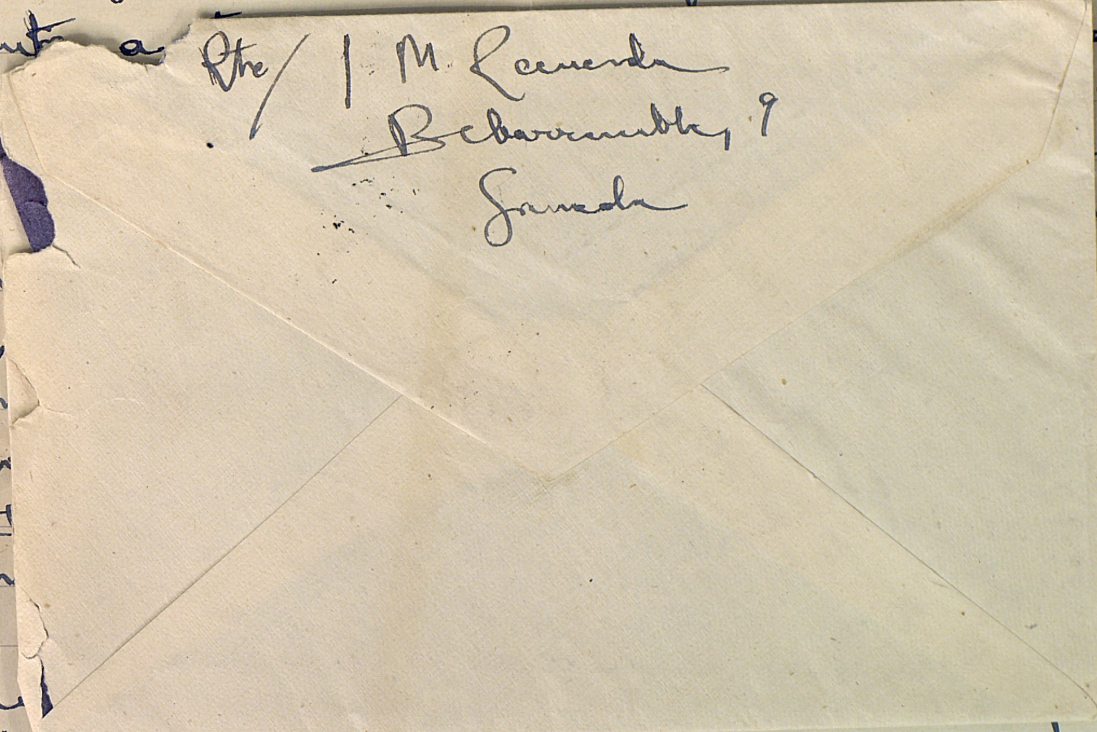 Rte/ J M. Recuerda
Bibarrambla, 9
Granada